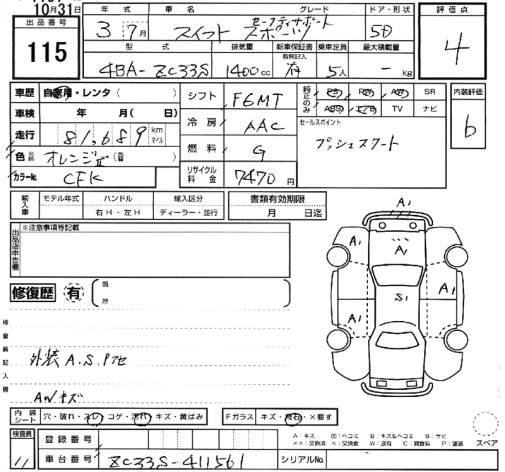 10月31日
出品番号
115
年式 車名 グレード ドア・形状
3 7月 スイフト セーフティサポート スポーツ 5D
評価点
4
型式 排気量 新車保証書 有無記入 乗車定員 最大積載量
4BA-ZC33S 1400cc 有 5人 -kg
車歴 自家用・レンタ( )
車検 年 月( )日
走行 81,689 km マイル
色 オレンジⅡ
カラーNo. CFK
シフト F6MT
冷房 AAC
燃料 G
リサイクル料金 7470円
純正のみ PS PW AW SR
ABS エアB TV ナビ
セールスポイント
プッシュスタート
内装評価
b
輸入車 モデル年式 ハンドル 輸入区分 書類有効期限
右H・左H ディーラー・並行 月 日迄
出品店申告欄 ※注意事項等記載
修復歴 有 箇所
検査員記入欄
外装A.S.P他
AWキズ
A1
A1
A1
S1
A1
A1
A1
内装シート 穴・破れ・スレ・コゲ・汚れ・キズ・黄ばみ Fガラス キズ・飛石・×要す
検査員 11
登録番号
車台番号 ZC33S-411561 シリアルNo.
A:キズ
××:交換済 ×:交換要 W:波有 C:腐食有 P:塗装
スペア